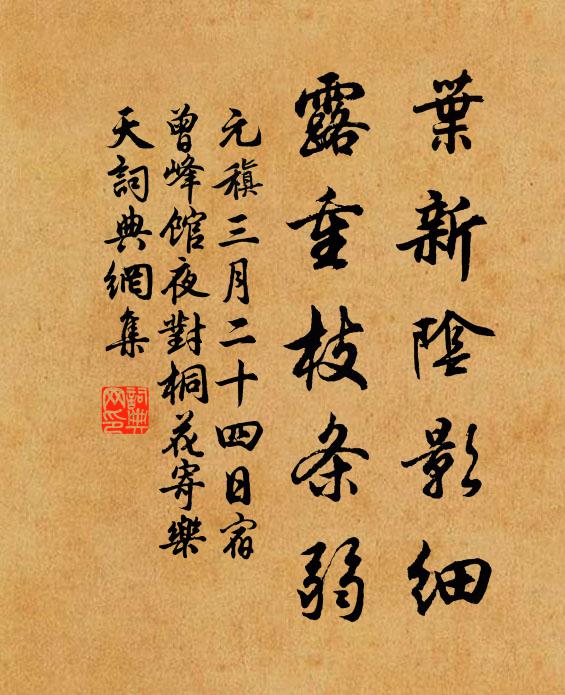 葉新陰影細
露重枝条弱
元稹三月二十四日宿
曾峰館夜對桐花寄樂
天詞典網集
詞典
网印